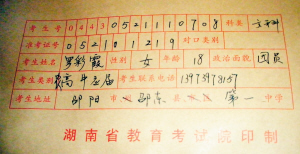 考生号 04430521110708 科类 文科
准考证号 0521811219 对口类别
考生姓名 罗彩霞 性别 女 年龄 18 政治面貌 团员
考生类别 高中应届 考生联系电话 13973978157
考生地址 邵阳 市 邵东 县 第一 中学
湖南省教育考试院印制